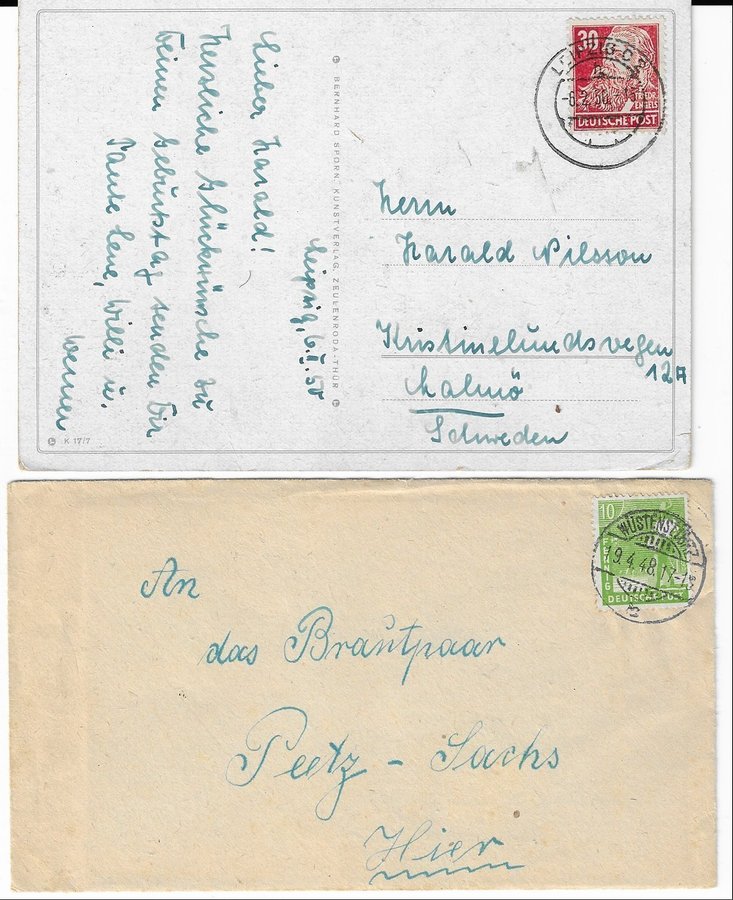 Leipzig, 6.II.50
Lieber Harald!
Herzliche Glückwünsche zu
Deinem Geburtstag senden Dir
Tante Lene, Willi u.
Werner
K 17/7
BERNHARD SPORN, KUNSTVERLAG, ZEULENRODA-THÜR
30
FRIEDR.
ENGELS
DEUTSCHE POST
LEIPZIG C 2
Herrn
Harald Nilsson
Kristinelundsvegen
12A
Malmö
Schweden
10
PFENNIG
DEUTSCHE POST
9.4.48.17-18
An
das Brautpaar
Peetz - Sachs
Hier